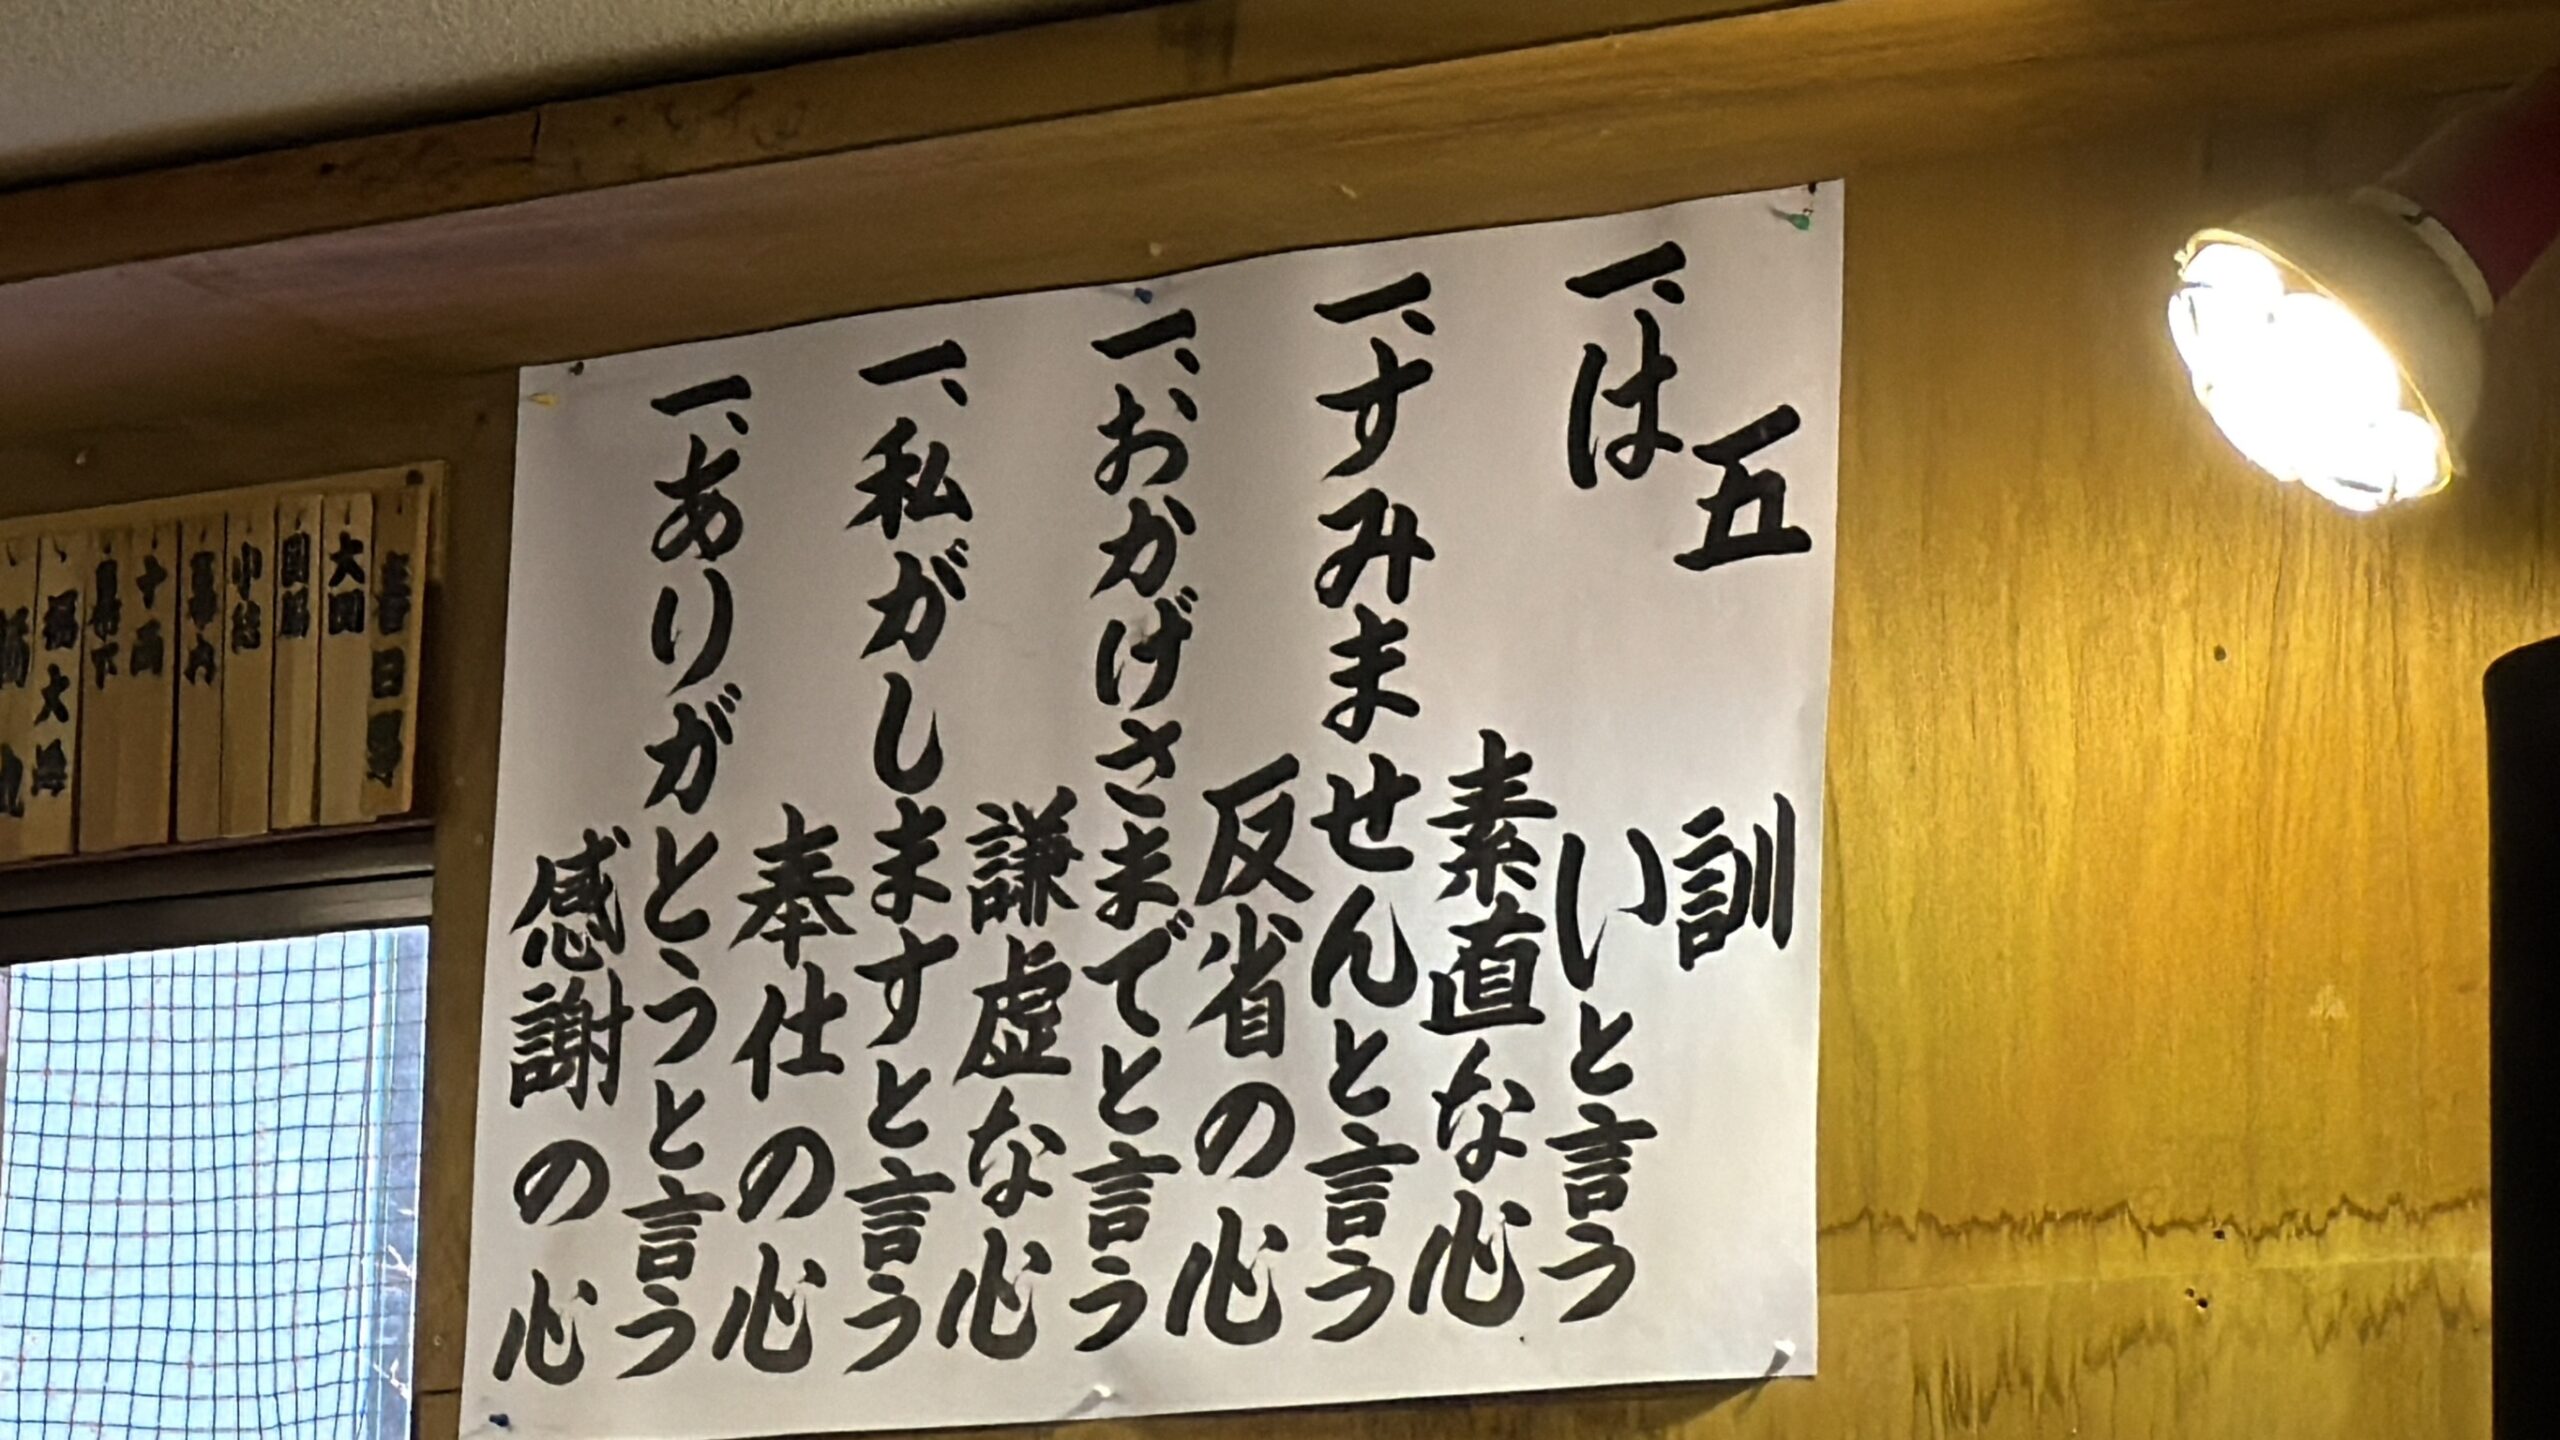 五訓
一、はいと言う
素直な心
一、すみませんと言う
反省の心
一、おかげさまでと言う
謙虚な心
一、私がしますと言う
奉仕の心
一、ありがとうと言う
感謝の心
春日
大関
関脇
小結
幕内
十両
幕下